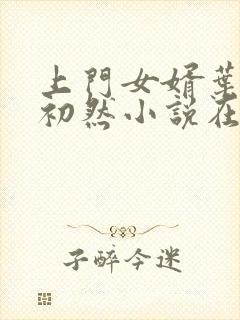 上門女婿葉
初然小說在
子醉今迷